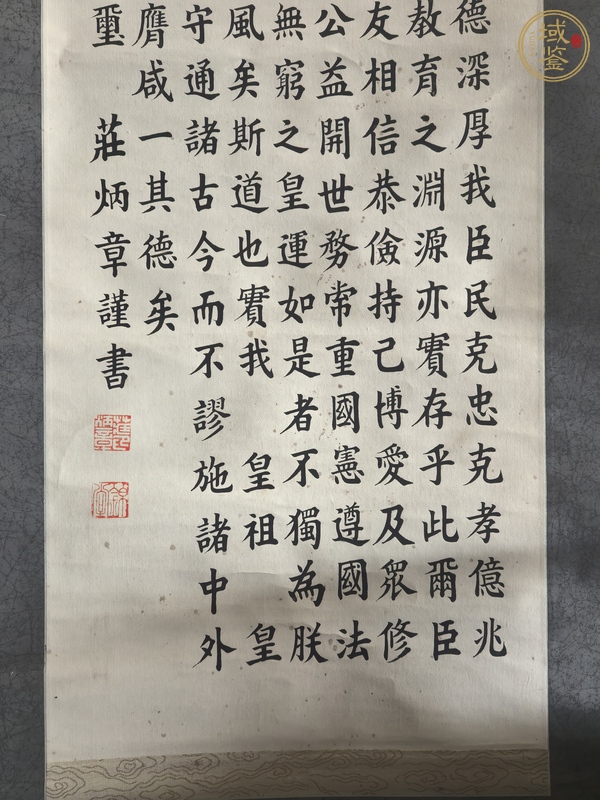 德深厚我臣民克忠克孝億兆
教育之淵源亦實存乎此爾臣
友相信恭儉持己博愛及眾修
公益開世務常重國憲遵國法
無窮之皇運如是者不獨為朕
風矣斯道也實我 皇祖 皇
守通諸古今而不謬施諸中外
膺咸一其德矣
璽 莊炳章謹書
域鉴